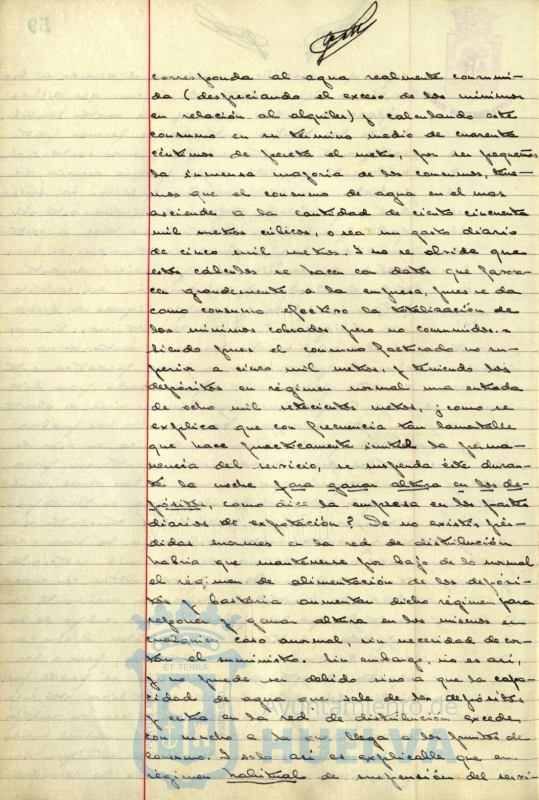 59
corresponda al agua realmente consumi-
da (despreciando el exceso de los mínimos
en relación al alquiler) y calculando este
consumo en su término medio de cuarenta
céntimos de peseta el metro, por ser pequeños
la inmensa mayoría de los consumos, tene-
mos que el consumo de agua en el mes
asciende a la cantidad de ciento cincuenta
mil metros cúbicos, o sea un gasto diario
de cinco mil metros. Y no se olvida que
estos cálculos se hacen con datos que favore-
cen grandemente a la empresa, pues se da
como consumo efectivo la totalización de
los mínimos cobrados pero no consumidos.-
Siendo pues el consumo facturado no su-
perior a cinco mil metros, y teniendo los
depósitos en régimen normal una entrada
de ocho mil setecientos metros, ¿como se
explica que con frecuencia tan lamentable
que hace practicamente inutil la perma-
nencia del servicio, se suspenda éste duran-
te la noche para ganar altura en los de-
pósitos, como dice la empresa en los partes
diarios de explotación? De no existir pér-
didas enormes en la red de distribución
habria que mantenerse por bajo de lo normal
el régimen de alimentación de los depósi-
tos y bastaria aumentar dicho régimen para
reponer y ganar altura en los mismos en
cualquier caso anormal, sin necesidad de cor-
tar el suministro. Sin embargo, no es así,
y no puede ser debido sino a que la capa-
cidad de agua que sale de los depósitos
y entra en la red de distribución excede
con mucho a la que llega a los puntos de
consumo. Y solo así es explicable que en
régimen habitual de suspensión del servi-
ET TERRÆ
Ayuntamiento de
HUELVA